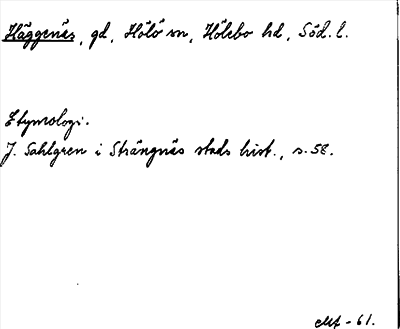 Häggenäs, gd, Hölö sn, Hölebo hd, Söd. l.
Etymologi.
J. Sahlgren i Strängnäs stads hist., s. 58.
-61.